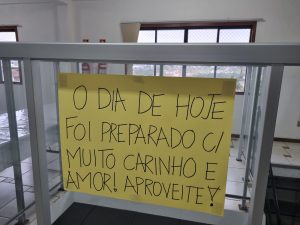 O DIA DE HOJE
FOI PREPARADO C/
MUITO CARINHO E
AMOR! APROVEITE!